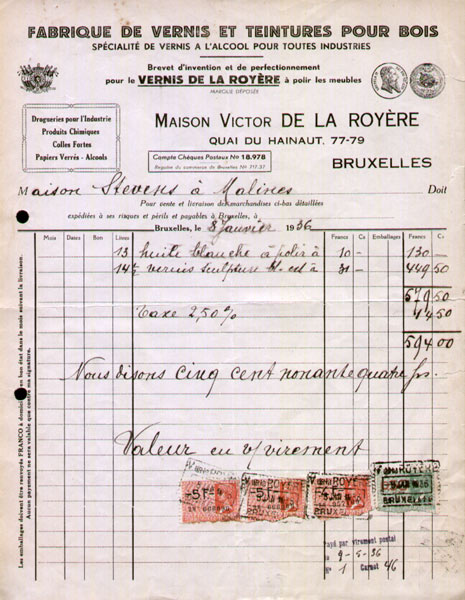 FABRIQUE DE VERNIS ET TEINTURES POUR BOIS
SPÉCIALITÉ DE VERNIS A L'ALCOOL POUR TOUTES INDUSTRIES
Brevet d'invention et de perfectionnement
pour le VERNIS DE LA ROYÈRE à polir les meubles
MARQUE DÉPOSÉE
Drogueries pour l'Industrie
Produits Chimiques
Colles Fortes
Papiers Verrés - Alcools
MAISON VICTOR DE LA ROYÈRE
QUAI DU HAINAUT, 77-79
Compte Chèques Postaux Nº 18.978
Registre du commerce de Bruxelles Nº 717.37
BRUXELLES
Maison Stevens à Malines Doit
Pour vente et livraison de marchandises ci-bas détaillées
expédiées à ses risques et périls et payables à Bruxelles, à
Bruxelles, le 8 Janvier 1936
Mois Dates Bon Litres Francs Cs Emballages Francs Cs
13 huile blanche à polir à 10 - 130 -
14½ vernis sculpture bl. est à 31 - 449 50
579 50
Taxe 2,50% 14 50
594 00
Nous disons cinq cent nonante quatre frs.
Valeur en v/virement
5 F
BRUXELLES
5 F
BRUXELLES
4 F
BRUXELLES
BRUXELLES
Payé par virement postal
le 9-5-36
Nº 1 Carnet 46
Les emballages doivent être renvoyés FRANCO à domicile en bon état dans le mois suivant la livraison.
Aucun payement ne sera valable que contre ma signature.